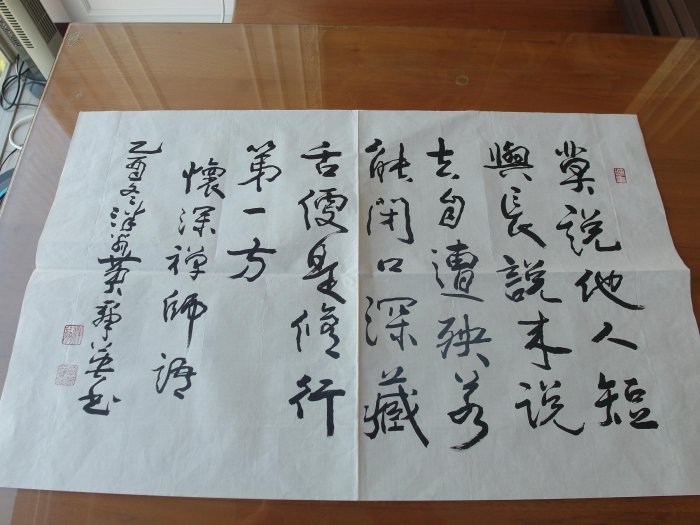 莫說他人短
與長說來說
去自遭殃若
能閉口深藏
舌便是修行
第一方
懷深禪師語
乙酉冬黃英書